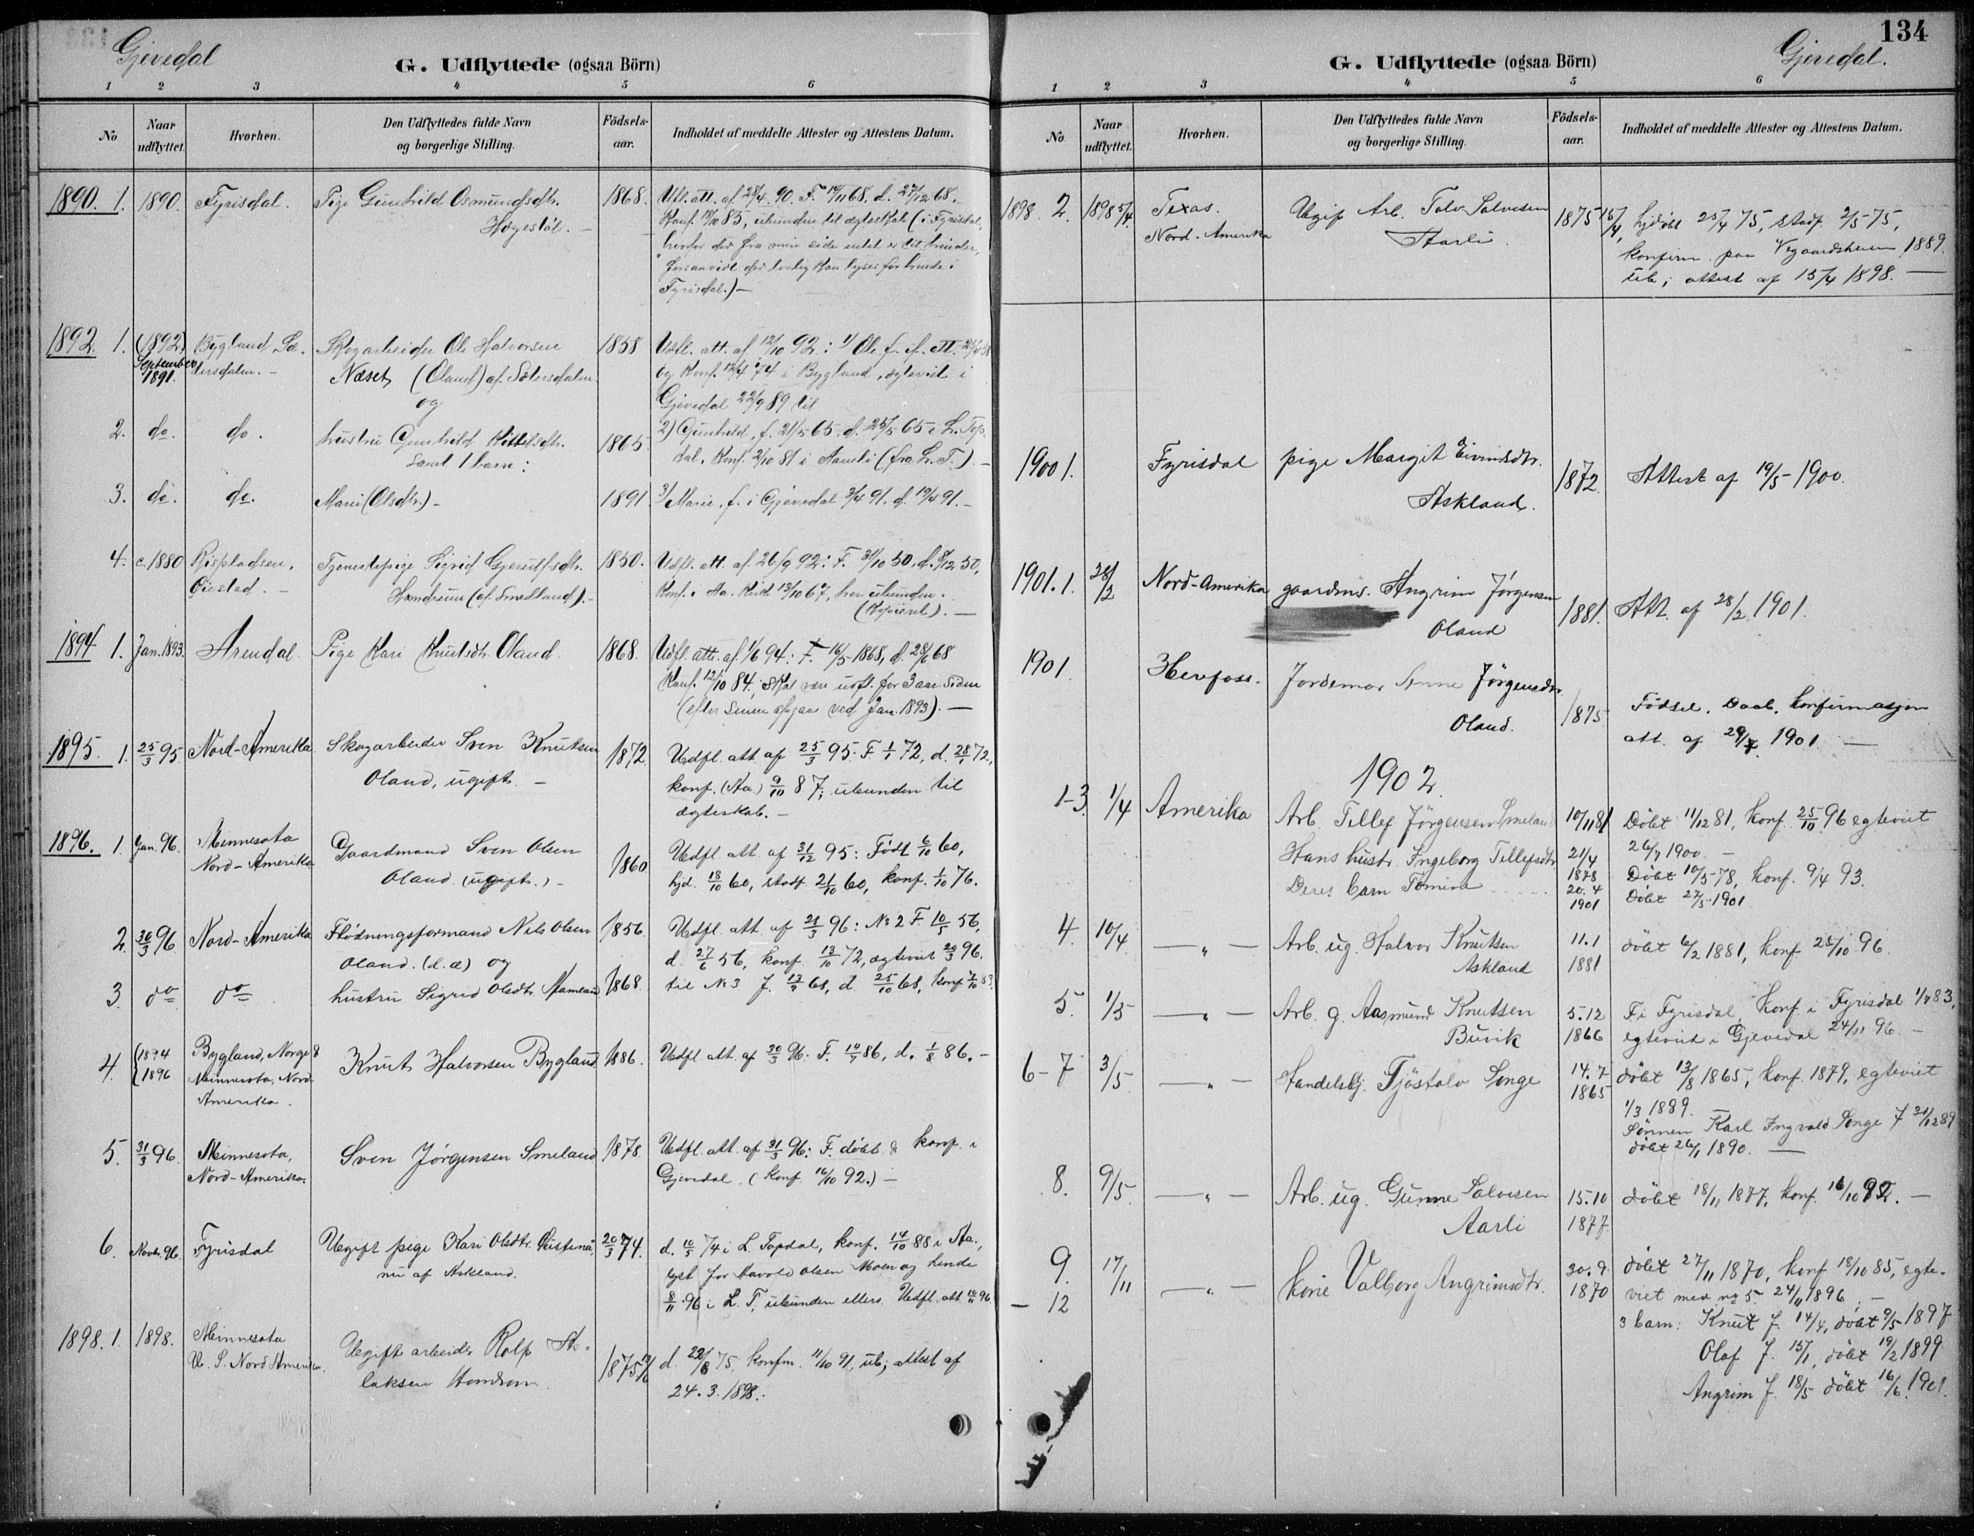 Gjevedal
G. Udflyttede (ogsaa Börn)
1 2 3 4 5 6
No Naar udflyttet. Hvorhen. Den Udflyttedes fulde Navn og borgerlige Stilling. Födsels-aar. Indholdet af meddelte Attester og Attestens Datum.
1890. 1. 1890. Fyrisdal. Pige Gunhild Osmundsdtr. 1868. Udl. att. af 28/4 90. F. 14/11 68. d. 27/12 68.
Konf. 18/10 85, ubunden til ægteskab (i Fyrisdal,
hvorfor der fra min side intet er til hinder,
forsaavidt der lovlig kan lyses for hende i
Fyrisdal.) —
1892. 1. (1892) Bygland, Sæ- Skogarbeider Ole Halvorsen 1858 Udfl. att. af 12/10 92: 1) Ole f.
September 1891. tersdalen. - Næset (Oland) af Sætersdalen og Konf. 12/4 74 i Bygland, ægteviet i
og Gjevedal 22/9 89 til
2. do. do. hustru Gunhild 1865 2) Gunhild, f. 21/5 65. d. 25/5 65 i Lr. Top-
samt 1 barn: dal, Konf. 2/10 81 i Aamli (fra Lr. T.). -
3. do. do. Marie (Olsdtr.) - 1891. 3) Marie, f. i Gjevedal 3/4 91. d. 19/4 91. -
4. c. 1880 Tjenestepige Sigrid 1850. Udfl. att. af 26/9 92: F. 31/10 50. d. 8/12 50,
Øiestad. - (af Smeland). - Konf. i Aa. Kirk 13/10 67, ubunden.
1894 1. Jan. 1893. Arendal. Pige Kari Knutsdtr. Oland. 1868. Udfl. att. af 1/6 94: F. 16/5 1868, d. 28/6 68
Konf. 12/10 84. Skal være udfl. for 3 aar siden
(efter senere opgave ved Jan. 1893). —
1895. 1. 25/3 95 Nord-Amerika Skogarbeider Sven Knutsen 1872 Udfl. att. af 25/3 95. F. 1/1 72, d. 28/1 72,
Oland, ugift. - konf. (Aa.) 9/10 87; ubunden til
ægteskab. -
1896. 1. Jan. 96. Minnesota Gaardmand Sven Olsen 1860 Udfl. att. af 31/12 95: Født 6/10 60,
Nord-Amerika Oland. (ugift.) - hjd. 18/10 60, stadf 21/10 60, konf. 1/10 76.
2. 30/3 96 Nord-Amerika Flödningsformand Nils Olsen 1856. Udfl. att. af 21/3 96: No 2 F. 10/5 56,
Oland. (d. æ) og d. 27/6 56, konf. 13/10 72, ægteviet 29/3 96.
3. do do. hustru Sigrid Olsdtr. 1868 til No 3 f. 13/9 68, d 25/10 68, konf 7/10 83.
4. {1894 1896 Bygland, Norge & Knut Halvorsen Bygland 1886. Udfl att. af 30/3 96: F. 14/7 86, d. 1/8 86. -
Minnesota, Nord
Amerika.
5. 31/3 96 Minnesota, Sven Jørgensen Smeland 1878. Udfl. att. af 31/3 96: F. døbt & konf. i
Nord-Amerika. Gjevedal. (Konf. 16/10 92.) -
6. Novbr. 96. Fyrisdal Ugift pige Kari Olsdtr. 20/3 74. d. 10/5 74 i L. Topdal, konf. 14/10 88 i Aa.,
nu af Askland. lyst for Havold Olsen Moen og hende
8/11 96 i L. T., ubunden ellers. Udfl. att. 96.
1898. 1. 1898. Minnesota Ugift arbeider Rolf As- 1875 d. 22/8 75, konfm. 11/10 91, ub; attest af
U. S. Nord Amerika. laksen Homdrom. 24. 3. 1898.
134
Gjevedal.
G. Udflyttede (ogsaa Börn)
1 2 3 4 5 6
No Naar udflyttet. Hvorhen. Den Udflyttedes fulde Navn og borgerlige Stilling. Födsels-aar. Indholdet af meddelte Attester og Attestens Datum.
1898. 2. 1898 5/4. Texas. Ugif Arb. Tolv Salvesen 1875 15/4, hjdøbt 25/4 75, stadf. 2/5 75,
Nord-Amerika Aarli. konfirm. paa Vegaardsheien 1889.
ub; attest af 15/4 1898. —
1900 1. Fyrisdal pige Margit Eivindsdtr. 1872. Attest af 19/5 1900.
Askland.
1901. 1. 28/2 Nord-Amerika gaardms. Angrim Jørgensen 1881. Att. af 28/2 1901.
Oland
1901. Herefoss. Jordemor Anne Jørgensdtr. 1875 Födsel. Daab. Konfirmasjon
Oland. att. af 29/7 1901 —
1902.
1-3. 1/4 Amerika Arb. Tellef Jørgensen Smeland 10/11 81 Döbt 11/12 81, konf. 25/10 96 egteviet
26/7 1900. —
Hans hustr. Ingeborg Tellefsdtr 21/4 1878 Døbt 10/5 78, konf. 9/4 93.
Deres barn Tomine 20. 4 1901 Døbt 27/5 1901
4. 10/4 — „ — Arb. ug. Halvor Knutsen 11. 1 1881 döbt 6/2 1881, konf 25/10 96.
Askland
5. 1/5 — „ — Arb. g. Aasmund Knutsen 5. 12 1866 F. i Fyrisdal, konf. i Fyrisdal 1/7 83,
Buvik egteviet i Gjevedal 24/11 96. —
6-7 3/5 — „ — Handelsbtj. Tjöstolv Songe 14. 7 1865 döbt 13/8 1865, konf. 1879, egteviet
1/3 1889.
Sönnen Karl Ingvald Songe f 31/12 89
döbt 26/1 1890. —
8. 9/5 — „ — Arb. ug. Gunne Salvesen 15. 10 1877 döbt 18/11 1877, konf. 16/10 92. —
Aarli
9. - 12 17/11 — „ — kone Valborg Angrimsdtr. 30. 9. 1870 döbt 27/11 1870, konf 18/10 85, egte-
viet med no 5. 24/11 1896. —
3 barn: Knut f. 14/4, döbt 9/5 1897
Olaf f. 15/1, döbt 19/2 1899
Angrim f. 18/5 döbt 16/6. 1901.